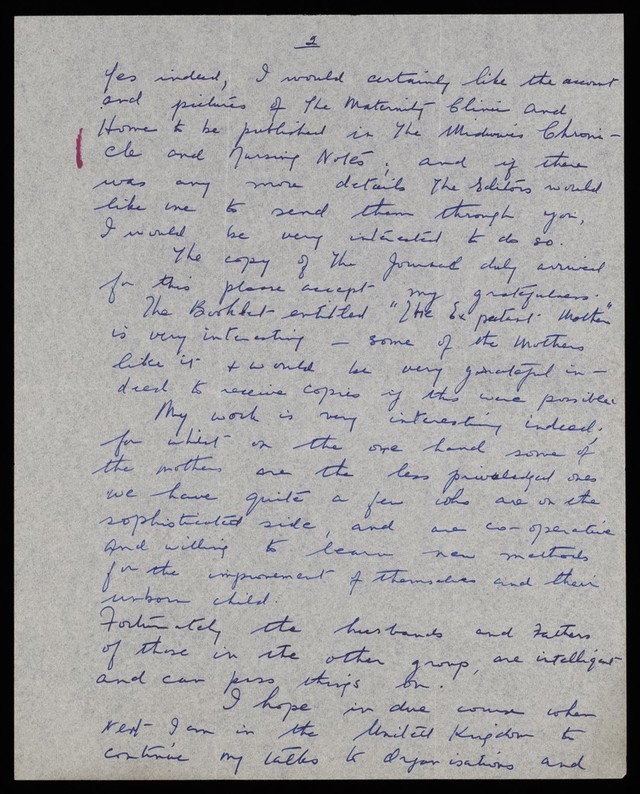 2
Yes indeed, I would certainly like the account
and pictures of The Maternity Clinic and
Home to be published in The Midwives Chroni-
cle and Nursing Notes; and if there
was any more details The Editors would
like me to send them through you,
I would be very interested to do so.
The copy of The Journal duly arrived
for this please accept my gratefulness.
The Booklet entitled "The Expectant Mother"
is very interesting — some of the Mothers
like it & would be very grateful in-
deed to receive copies if this were possible.
My work is very interesting indeed,
for whilst on the one hand some of
the mothers are the less priveledged ones
we have quite a few who are on the
sophisticated side, and are co-operative
and willing to learn new methods
for the improvement of themselves and their
unborn child.
Fortunately the husbands and Fathers
of those in the other group, are intelligent
and can pass things on.
I hope in due course when
next I am in the United Kingdom to
continue my talks to Organisations and